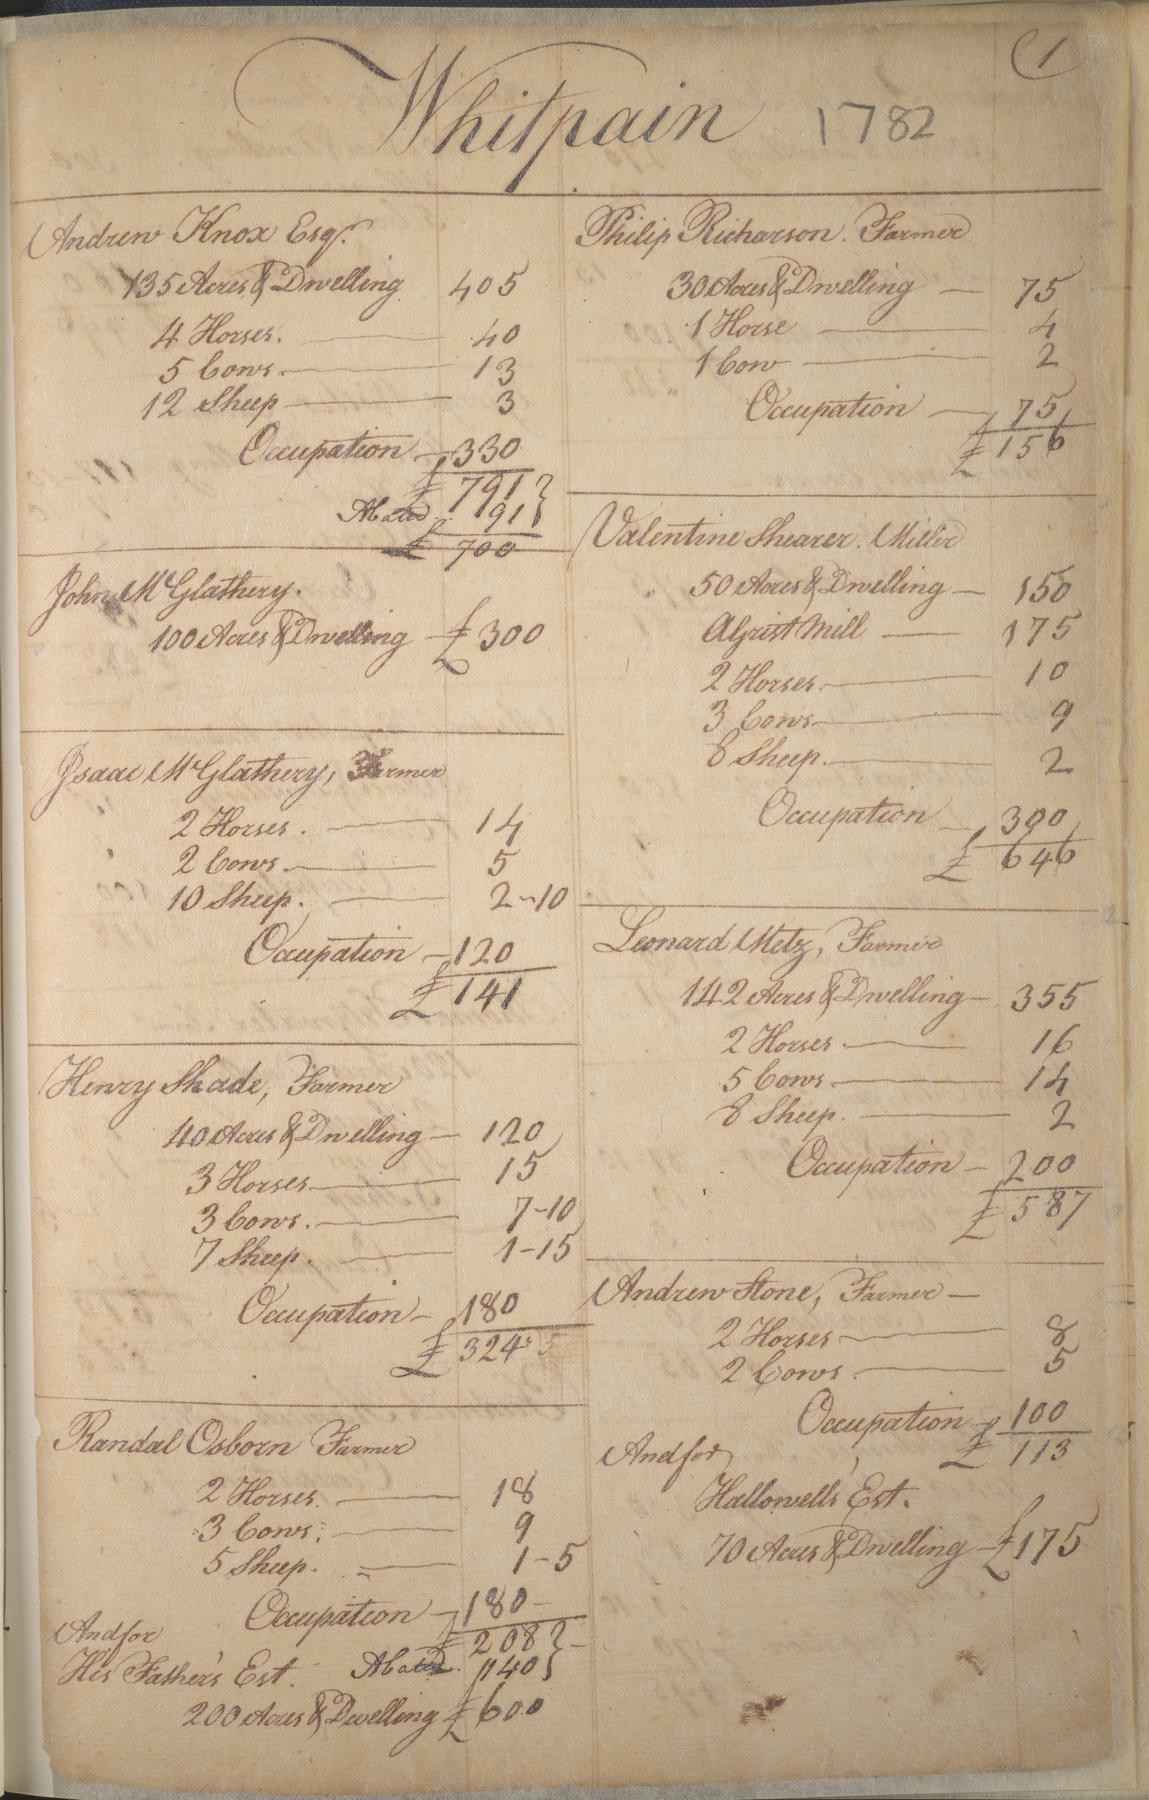 1
Whitpain 1782
Andrew Knox Esqr.
135 Acres & Dwelling 405
4 Horses. 40
5 Cows. 13
12 Sheep 3
Occupation 330
£ 791
Abated 91
£ 700
John McGlathery.
100 Acres & Dwelling £ 300
Isaac McGlathery, Farmer
2 Horses. 14
2 Cows. 5
10 Sheep. 2-10
Occupation 120
£ 141
Henry Shade, Farmer
40 Acres & Dwelling 120
3 Horses 15
3 Cows. 7-10
7 Sheep. 1-15
Occupation 180
£ 324 5
Randal Osborn Farmer
2 Horses. 18
3 Cows. 9
5 Sheep. 1-5
Occupation 180
£ 208
And for
His Father's Est. Abated 140
200 Acres & Dwelling £ 600
Philip Richarson. Farmer
30 Acres & Dwelling 75
1 Horse 4
1 Cow 2
Occupation 75
£ 156
Valentine Shearer. Miller
50 Acres & Dwelling 150
A Grist Mill 175
2 Horses. 10
3 Cows 9
8 Sheep. 2
Occupation 300
£ 646
Leonard Metz, Farmer
142 Acres & Dwelling 355
2 Horses 16
5 Cows 14
8 Sheep. 2
Occupation 200
£ 587
Andrew Stone, Farmer
2 Horses 8
2 Cows. 5
Occupation 100
£ 113
And for
Hallowells Est.
70 Acres & Dwelling £ 175